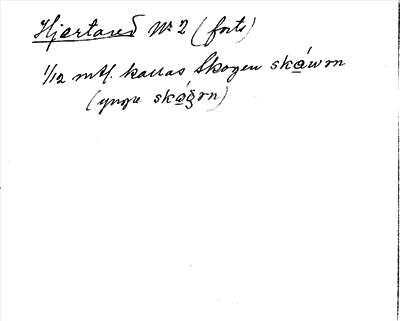 Hjärtared Nr 2 (forts)
1/12 mtl. kallas Skogen skáwon
(yngre skágon)